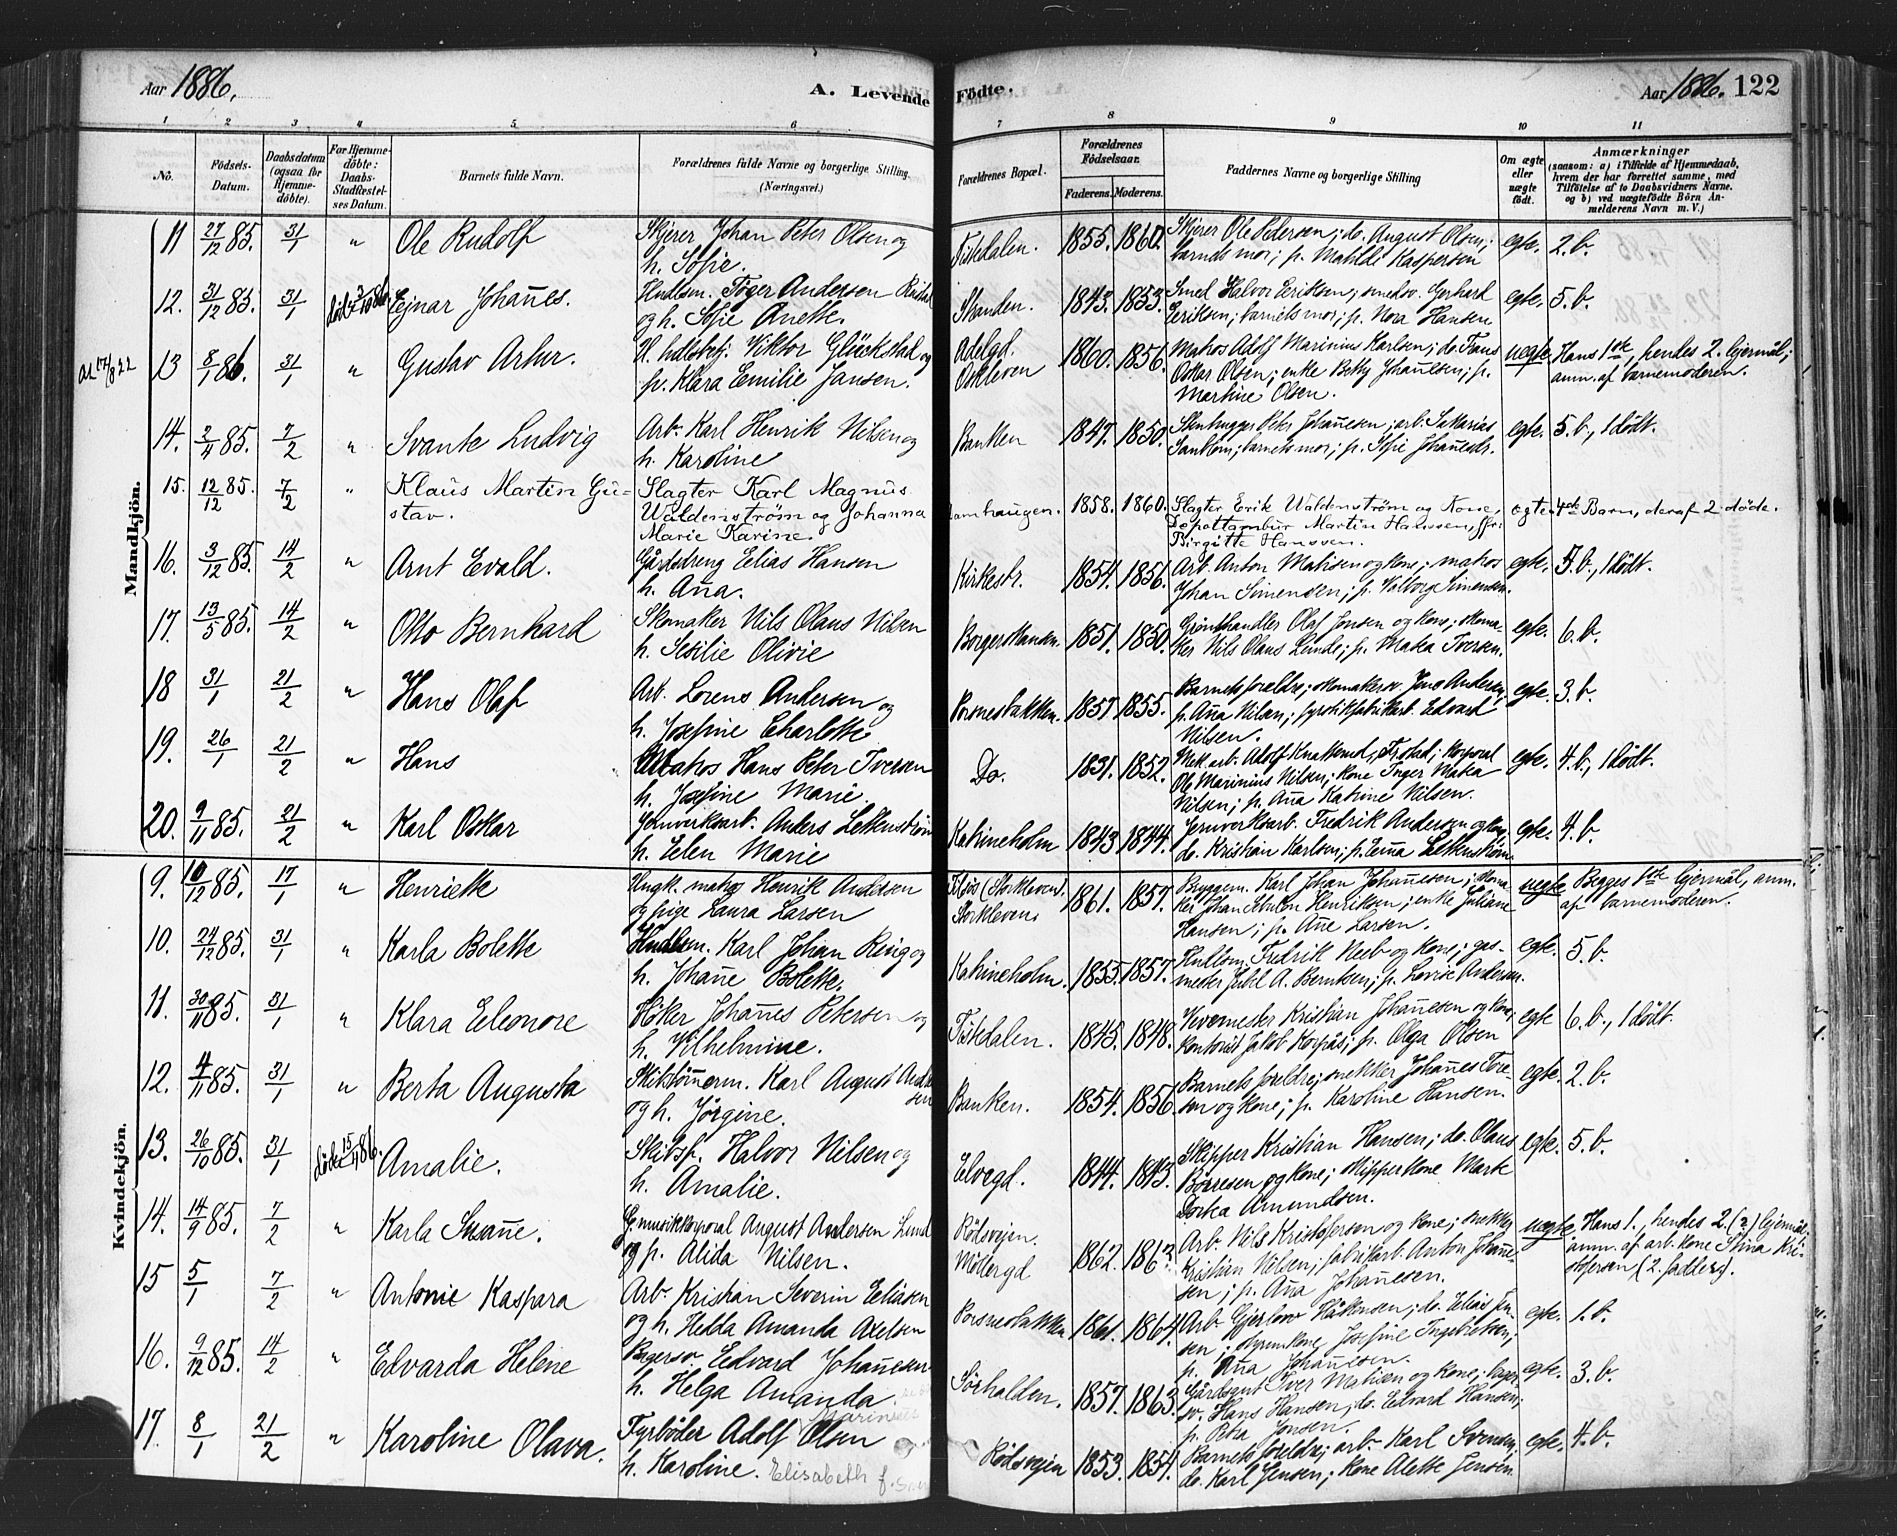 Aar 1886.
A. Levende
Fødte.
Aar 1886. 122
1 2 3 4 5 6 7 8 9 10 11
No.
Fødsels-
Datum.
Daabsdatum
(ogsaa for
Hjemme-
døbte).
For Hjemme-
døbte:
Daabs-
Stadfæstel-
ses Datum.
Barnets fulde Navn.
Forældrenes fulde Navne og borgerlige Stilling.
(Næringsvei.)
Forældrenes Bopæl.
Forældrenes
Fødselsaar.
Faderens. Moderens.
Faddernes Navne og borgerlige Stilling
Om ægte
eller
uægte
født.
Anmærkninger
(saasom: a) i Tilfælde af Hjemmedaab,
hvem der har forrettet samme, med
Tilføielse af to Daabsvidners Navne.
og b) ved uægtefødte Børn An-
melderens Navn m. V.)
Mandkjön.
11 27/12 85. 31/1 " Ole Rudolf
Skjærer Johan Peter Olsen og
h. Sofie.
Fiskedalen. 1855. 1860.
Skjærer Ole Pedersen; do. August Olsen;
barnets mor; p. Matilde Kaspersen
egte. 2. b.
12. 31/12 85. 31/1 Ejnar Johañes.
Hndlsm. Tøger Andersen
og h. Sofie Anette.
Skanden. 1843. 1853.
Smed Halvor Eriksen; smedsv. Gerhard
Eriksen; barnets mor; p. Nora Hansen
egte. 5. b.
13 8/1 86. 31/1 " Gustav Artur.
Viktor Glückstad og
p. Klara Emilie Jansen.
Adelgd.
Oskleven
1860. 1856.
Matros Adolf Marinius Karlsen; do. Frans
Oskar Olsen; enke Betty Johañesen; p.
Martine Olsen.
uegte Hans 1ste, hendes 2. lejermål;
anm. af barnemoderen.
14. 2/4 85. 7/2 " Svante Ludvig
Arb. Karl Henrik Nilsen og
h. Karoline
Banken 1847. 1850.
Stenhugger Peter Johañesen; arb. Sakarias
barnets mor; p. Sofie Johañesdr.
egte. 5. b., 1 dödt.
15. 12/12 85. 7/2 " Klaus Martin Gu-
stav.
Slagter Karl Magnus
Waldenstrøm og Johanna
Marie Karine.
1858. 1860.
Slagter Erik Waldenstrøm og Kone,
Depottambur Martin Hanssen, frk.
Birgitte Hanssen.
ægte 4de Barn, deraf 2 døde.
16. 3/12 85. 14/2 " Arnt Evald.
Gårdsdreng Elias Hansen
h. Aña.
Kirkestr. 1854. 1856.
Arb. Anton Matisen og kone; matros
Johan Simensen; p. Valborg Simensen.
egte. 5. b., 1 dödt.
17. 13/5 85. 14/2 " Otto Bernhard
Skomaker Nils Olaus Nilsen
h. Sesilie Olivie
Borgerskansen. 1851. 1850.
Grønthandler Olaf Jonsen og kone; skoma-
ker Nils Olaus Lunde; p. Maka Iversen.
egte. 6. b.
18 31/1 21/2 " Hans Olaf
Arb. Lorens Andersen og
h. Josefine Charlotte
Porsnesbakken. 1857 1855.
Barnets foreldre; skomakersv. Jens Andersen;
p. Aña Nilsen; fyrstikfabrikarb. Edvard
Nilsen.
egte. 3. b.
19. 26/1 21/2 " Hans
Matros Hans Peter Iversen
h. Josefine Marie.
Do. 1851. 1852.
Mek. arb. Adolf Knatterud, Fr.stad; korporal
Ole Marinius Nilsen; kone Inger Maka
Nilsen; p. Aña Katrine Nilsen.
egte. 4. b., 1 dödt.
20. 9/11 85. 21/2 " Karl Oskar
Jernverksarb. Anders Lekkenström
h. Elen Marie
Katrineholm 1843 1844.
Jernverksarb. Fredrik Andersen og kone,
do. Kristian Karlsen; p. Lekkenstrøm
egte. 4. b.
Kvindekjön.
9. 10/12 85. 17/1 " Henriette
Ungk. matros Henrik Andersen
og pige Laura Larsen
(Storkleven).
Storkleven
1861. 1857.
Bryggem. Karl Johan Johañesen; skoma-
ker Johan Henriksen; enke Juliane
Hansen; p. Añe Larsen.
uegte Begges 1ste lejermål, anm.
af barnemoderen.
10. 24/12 85. 31/1 " Karla Bolette
Hndlsm. Karl Johan Ring og
h. Johañe Bolette.
Katrineholm. 1855. 1857.
Hndlsm. Fredrik Neeb og kone; gas-
mester Jubl A. Berntsen; p. Lovise Andersen.
egte. 5. b.
11. 30/11 85. 31/1 " Klara Eleonore
Høker Johañes Petersen og
h. Vilhelmine.
Fiskedalen. 1845. 1848.
Vevermester Kristian Johañesen og kone,
kontorist Jakob Korpås; p. Olga Olsen
egte 6. b., 1 dödt.
12. 4/11 85. 31/1 " Berta Augusta
Skibstømerm. Karl August Ander
sen
og h. Jørgine.
Banken. 1854. 1856
Barnets foreldre; snekker Johañes Tore-
sen og kone; p. Karoline Hansen.
egte. 2. b.
13. 26/10 85. 31/1 Amalie.
Skibsf. Halvor Nilsen og
h. Amalie.
Elvegd. 1844. 1843.
Skipper Kristian Hansen; do. Olaus
Börresen og kone; skipperkone Marte
Dorka Amundsen.
egte. 5. b.
14. 14/9 85. 7/2 " Karla Susañe.
musikkorporal August Andersen Lund
og p. Alida Nilsen.
Rödsvejen.
Möllergd
1862. 186
Arb. Nils Kristofersen og kone; snekker
Kristian Nilsen; fabrikarb. Anton Johañe-
sen; p. Aña Johañesen.
uegte Hans 1., hendes 2. (?) lejermål,
anm. af arb. kone Stina Kri-
stofersen (2. fadder).
15 5/1 7/2 " Antonie Kaspara
Arb. Kristian Severin Eliasen
og h. Helda Amanda Axelsen
Porsnesbakken 1861. 1864
Arb. Gjerlow Håkensen; do. Elias Jen-
sen; kone Josefine Ingebretsen;
p. Aña Johañesen.
egte. 1. b.
16. 9/12 85. 14/2 " Edvarda Helene
Bagersv. Edvard Johañesen
h. Helga Amanda.
Sörhalden. 1857. 1863.
Gårdsgut Iver Matisen og kone; bager
sv. Hans Hansen; do. Edvard Hansen;
p. Petra Jonsen.
egte. 3. b.
17 8/1 21/2 " Karoline Olava.
Marinius
Fyrbøder Adolf Olsen
h. Karoline. Elisabeth f.
Rödsvejen 1853. 1854.
Barnets foreldre; arb. Karl Svensen,
do. Karl Jensen; kone Alette Jensen
egte. 4. b.